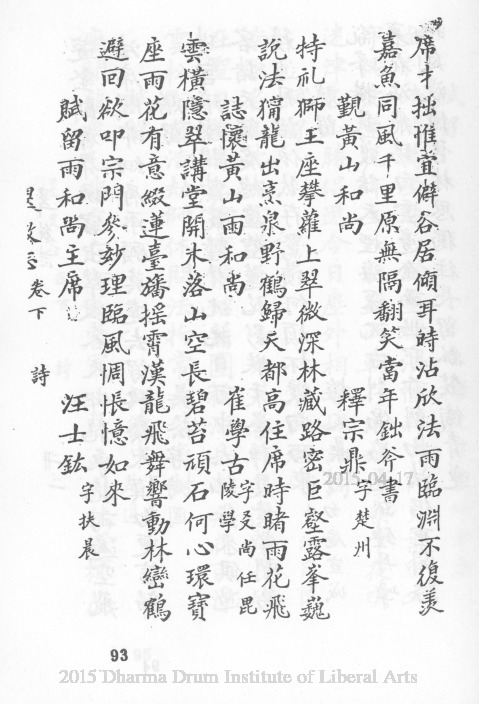 席才拙惟宜僻谷居傾耳時沾欣法雨臨淵不復羨
嘉魚同風千里原無隔翻笑當年鈯斧書
覲黃山和尚
釋宗鼎字楚州
持礼獅王座攀蘿上翠微深林藏路密巨壑露峯巍
說法獰龍出烹泉野鶴歸天都高住席時睹雨花飛
誌懷黃山雨和尚
崔學古字又尚任毘陵學
雲橫隱翠講堂開木落山空長碧苔頑石何心環寶
座雨花有意綴蓮臺旛搖霄漢龍飛舞響動林巒鶴
避回欲叩宗門參玅理臨風惆悵憶如來
賦留雨和尚主席
汪士鈜字扶晨
卷下
詩
93
2015-04-17
2015 Dharma Drum Institute of Liberal Arts